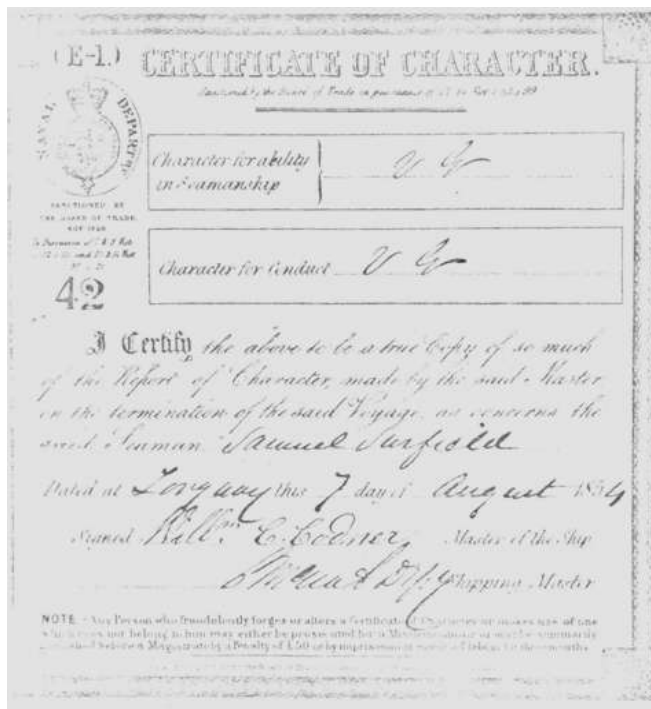 (E-1.) CERTIFICATE OF CHARACTER.
Sanctioned by the Board of Trade in pursuance of
NAVAL DEPARTMT
SANCTIONED BY
THE BOARD OF TRADE
In Pursuance of
42
Character for ability
in Seamanship
V G
Character for Conduct V G
I Certify the above to be a true Copy of so much
of the Report of Character, made by the said Master
on the termination of the said Voyage, as concerns the
said Seaman Samuel Surfield
Dated at Torquay this 7 day of August 1854
Signed Willm C. Codner, Master of the Ship
Shipping Master
NOTE - Any Person who fraudulently forges or alters a Certificate of Character or makes use of one
which does not belong to him may either be prosecuted for a Misdemeanour or may be summarily
punished before a Magistrate by a Penalty of £50 or by imprisonment